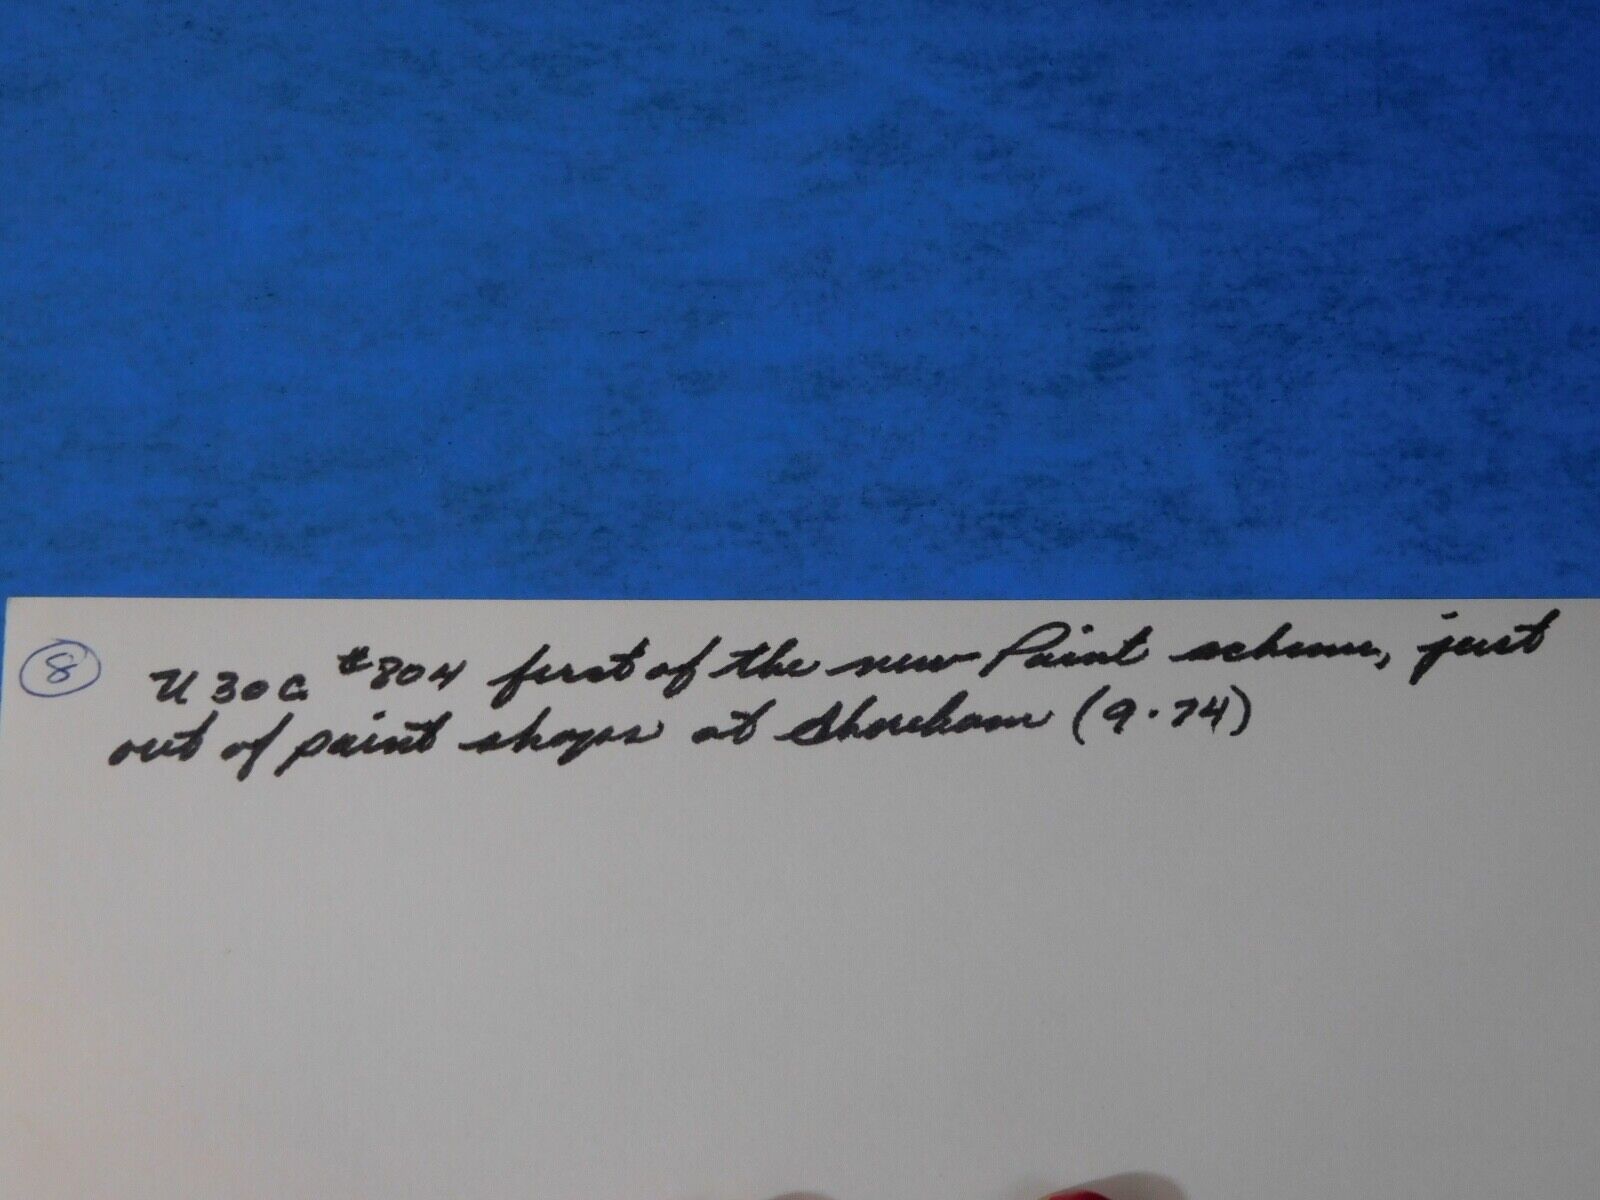 8
U30C #804 first of the new Paint scheme, just
out of paint shops at Shoreham (9.74)